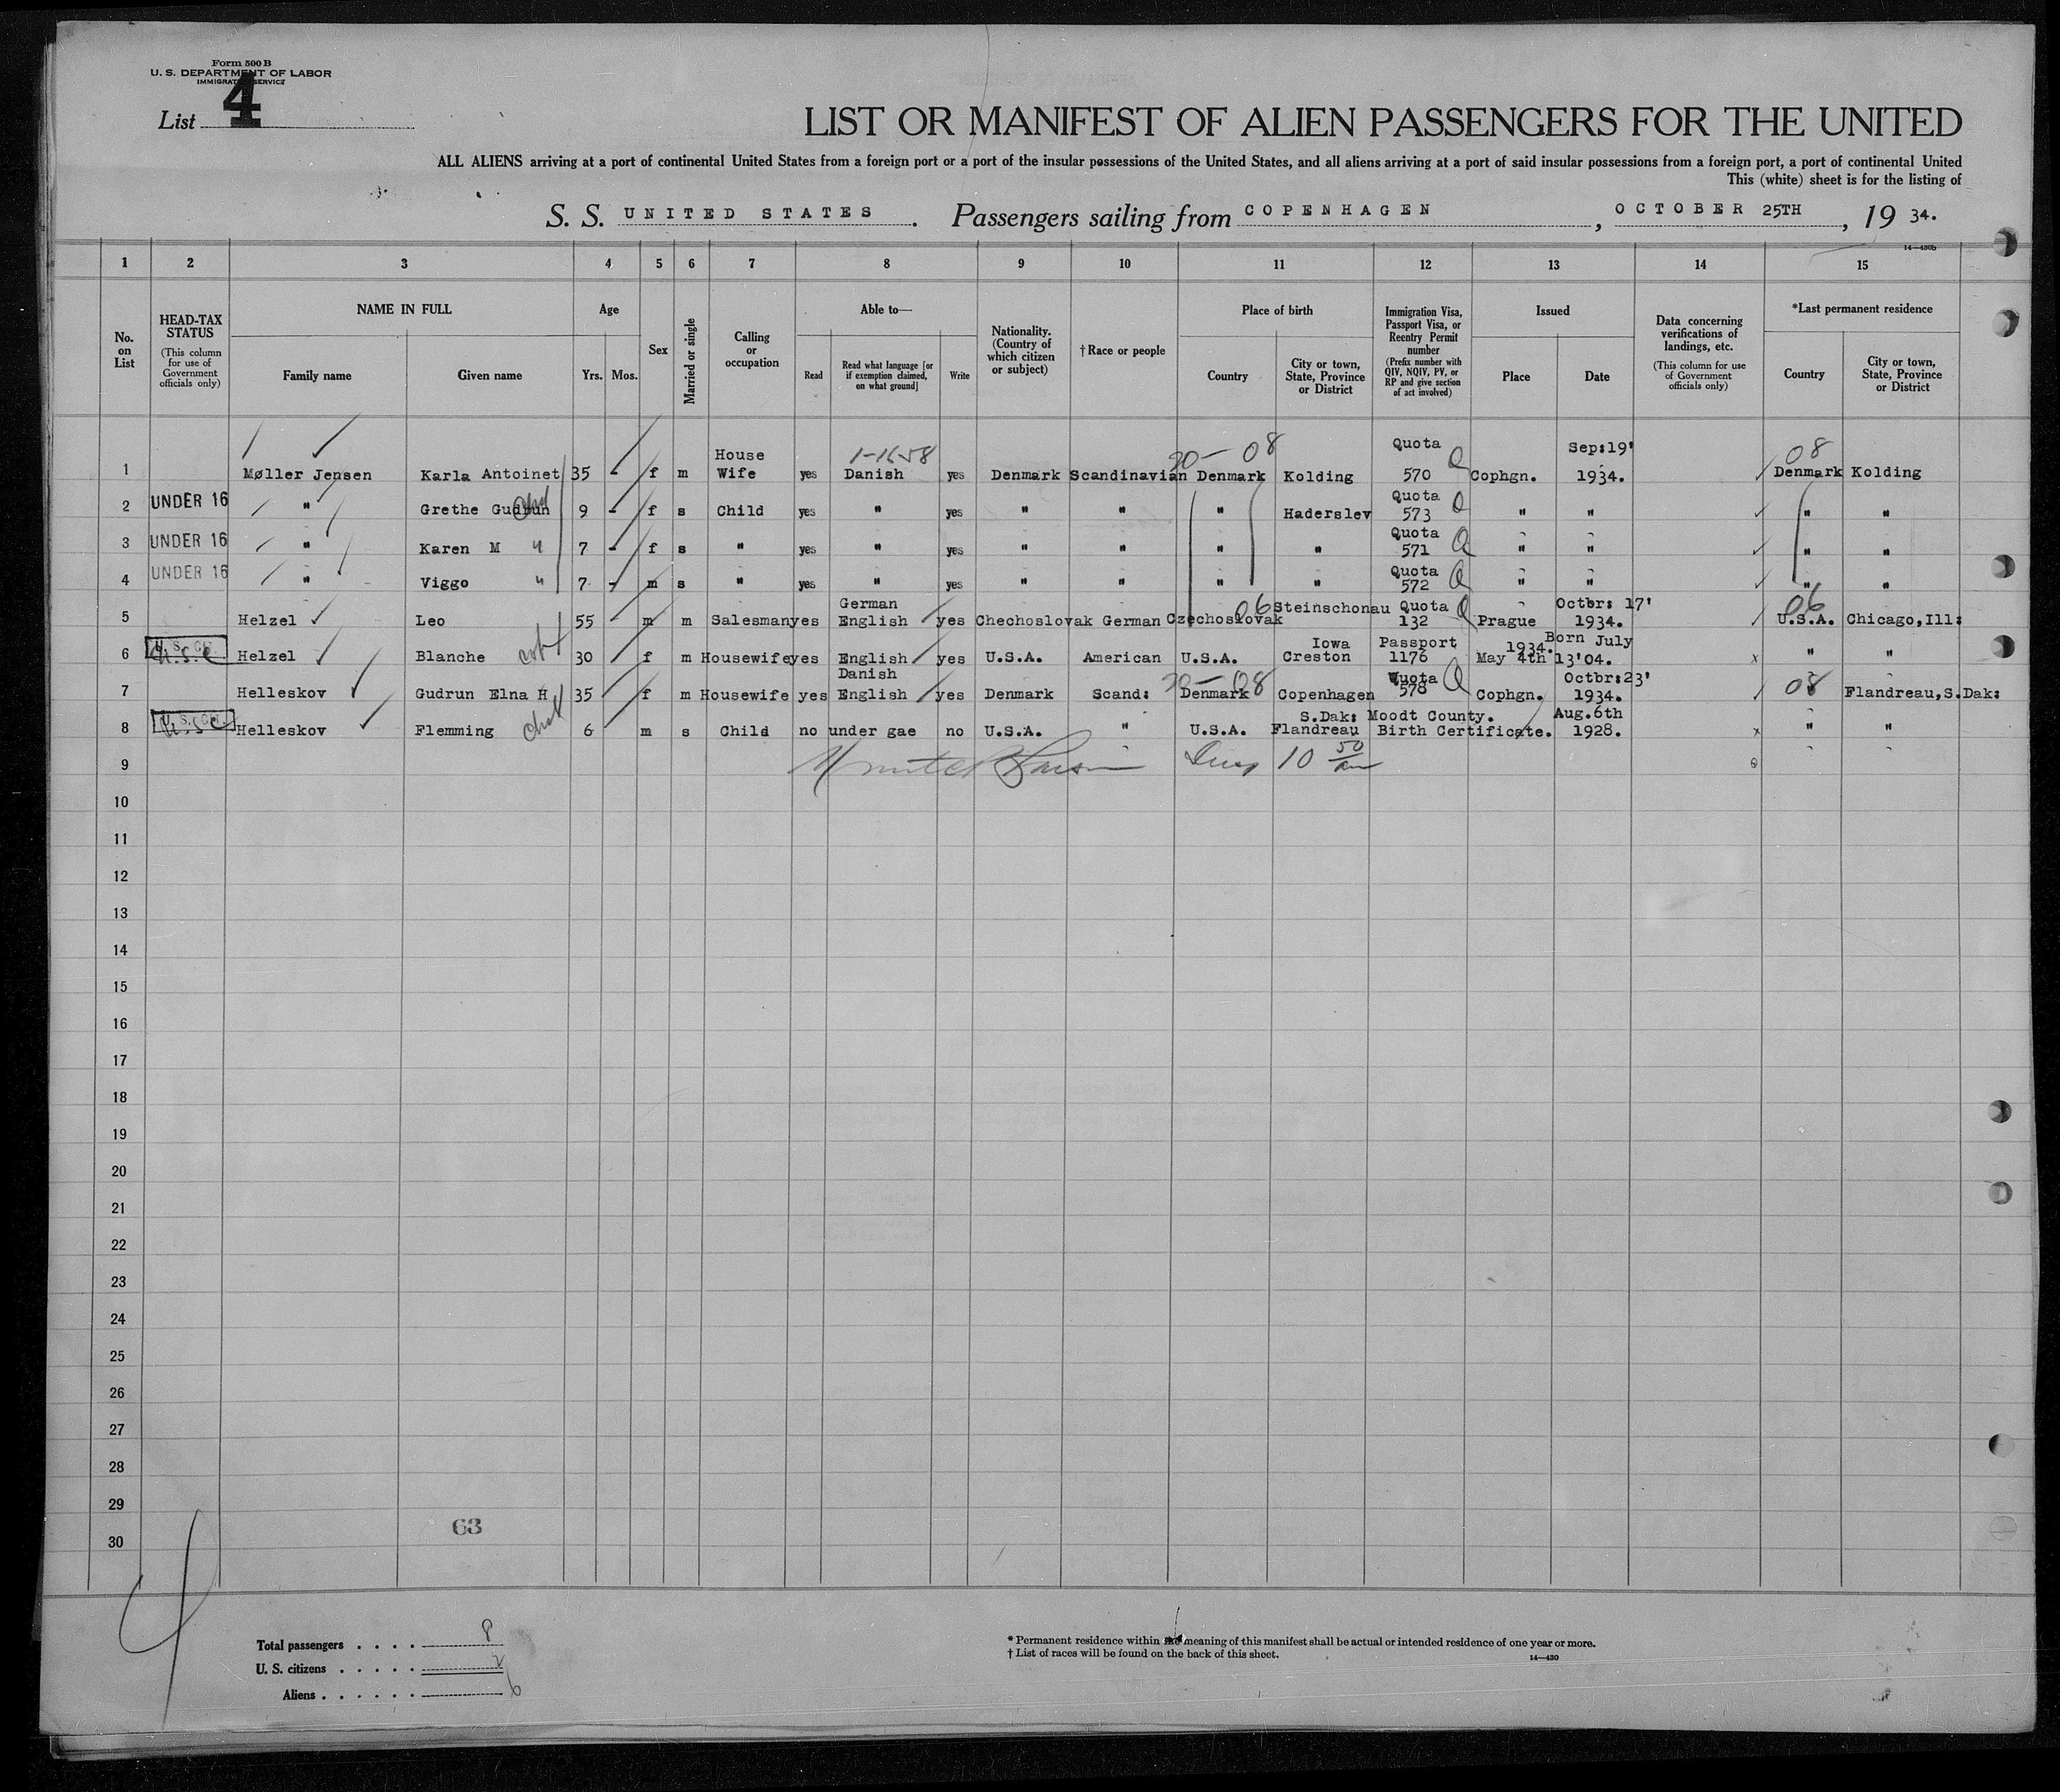 Form 500 B
U. S. DEPARTMENT OF LABOR
IMMIGRATION SERVICE
List 4
LIST OR MANIFEST OF ALIEN PASSENGERS FOR THE UNITED
ALL ALIENS arriving at a port of continental United States from a foreign port or a port of the insular possessions of the United States, and all aliens arriving at a port of said insular possessions from a foreign port, a port of continental United
This (white) sheet is for the listing of
S. S. UNITED STATES. Passengers sailing from COPENHAGEN, OCTOBER 25TH, 19 34.
14—430b
1 2 3 4 5 6 7 8 9 10 11 12 13 14 15
No. on List
HEAD-TAX STATUS
(This column for use of Government officials only)
NAME IN FULL
Family name
Given name
Age
Yrs. Mos.
Sex
Married or single
Calling or occupation
Able to—
Read
Read what language [or if exemption claimed, on what ground]
Write
Nationality. (Country of which citizen or subject)
†Race or people
Place of birth
Country
City or town, State, Province or District
Immigration Visa, Passport Visa, or Reentry Permit number
(Prefix number with QIV, NQIV, PV, or RP and give section of act involved)
Issued
Place
Date
Data concerning verifications of landings, etc.
(This column for use of Government officials only)
*Last permanent residence
Country
City or town, State, Province or District
1-16-58 20—08 Quota Sep:19' 08
1 Møller Jensen Karla Antoinet 35 - f m House Wife yes Danish yes Denmark Scandinavian Denmark Kolding 570 Q Cophgn. 1934. Denmark Kolding
2 UNDER 16 " Grethe Gudrun 9 - f s Child yes " yes " " " Haderslev Quota 573 Q " " " "
3 UNDER 16 " Karen M " 7 - f s " yes " yes " " " " Quota 571 Q " " " "
4 UNDER 16 " Viggo " 7 - m s " yes " yes " " " " Quota 572 Q " " " "
5 Helzel Leo 55 m m Salesman yes German English yes Chechoslovak German Czechoslovak 06 Steinschonau Quota 132 Q Prague Octbr: 17' 1934. 06 U.S.A. Chicago,Ill:
6 U.S. CIT. U.S.C Helzel Blanche 30 f m Housewife yes English yes U.S.A. American U.S.A. Iowa Creston Passport 1176 1934. May 4th Born July 13'04. x " "
7 Helleskov Gudrun Elna H 35 f m Housewife yes Danish English yes Denmark Scand: 20—08 Denmark Copenhagen Quota 578 Q Cophgn. Octbr:23' 1934. 08 Flandreau,S.Dak:
8 U.S. CIT. U.S.C Helleskov Flemming 6 m s Child no under gae no U.S.A. " U.S.A. S.Dak: Flandreau Moodt County. Birth Certificate. Aug.6th 1928. x " "
9 10 50
10
11
12
13
14
15
16
17
18
19
20
21
22
23
24
25
26
27
28
29
30
63
Total passengers . . . . 8
U. S. citizens . . . . . 2
Aliens . . . . . . 6
* Permanent residence within the meaning of this manifest shall be actual or intended residence of one year or more.
† List of races will be found on the back of this sheet.
14—430